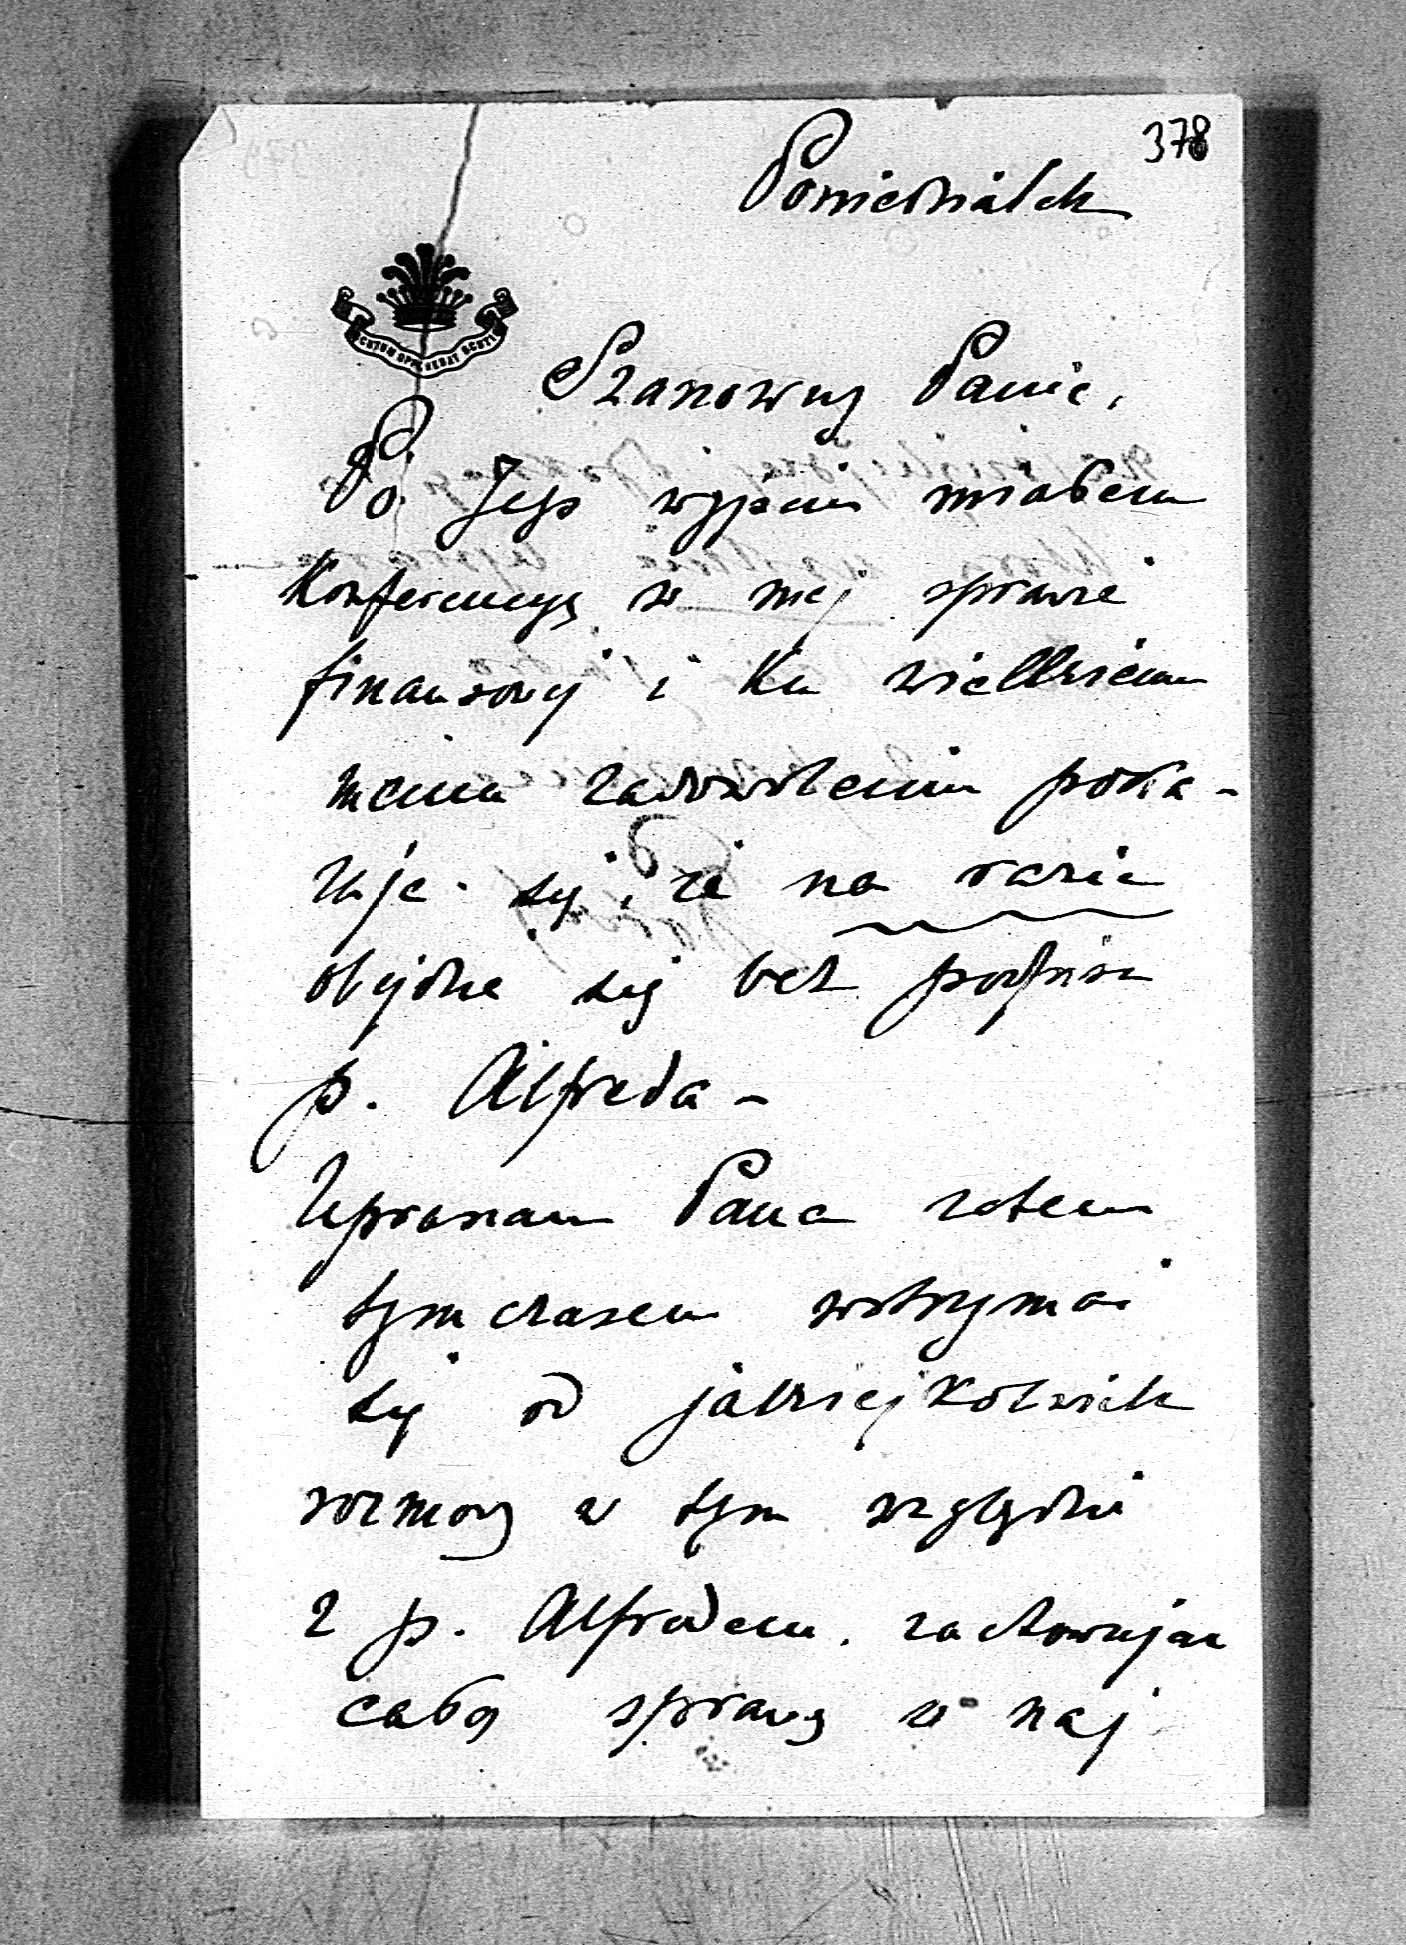 378
Poniedziałek
Szanowny Panie,
Po Jego wyjściu miałem
Konferencyę w mej sprawie
finansowej i ku wielkiemu
memu zadowoleniu poka-
zuje się, że na razie
obejdzie się bez podpisu
p. Alfreda -
Upraszam Pana zatem
tymczasem wstrzymać
się od jakiejkolwiek
rozmowy w tym względzie
z p. Alfredem, zachowując
całą sprawę w naj